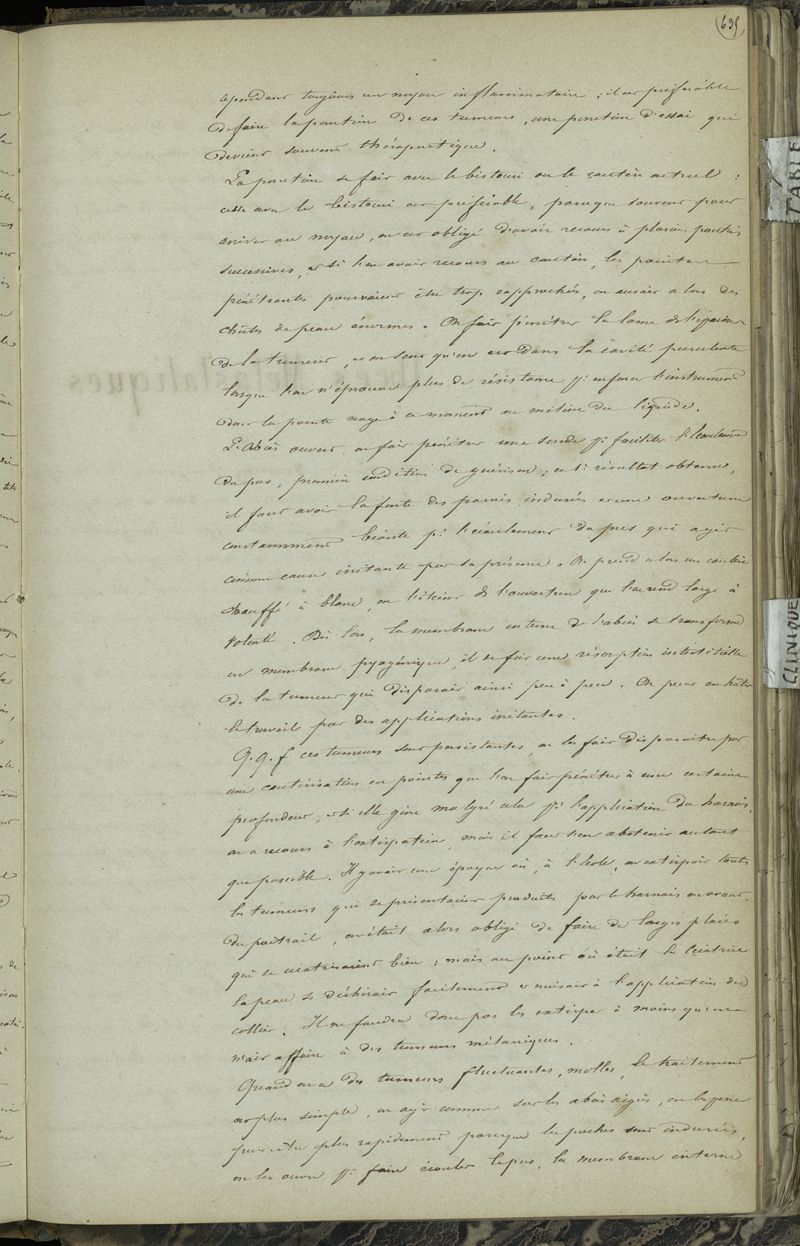 635
cependant toujours un noyau inflammatoire ; il est préférable
de faire la ponction de ces tumeurs, une ponction d'essai qui
devient souvent thérapeutique.
La ponction se fait avec le bistouri ou le cautère actuel :
celle avec le bistouri est préférable, parceque souvent pour
arriver au noyau, on est obligé d'avoir recours à plusieurs ponctions
successives, et si l'on avait recours au cautère, les pointes
pénétrantes pourraient être trop rapprochées, on aurait alors des
chutes de peau énormes. On fait pénétrer la lame dans l'épaisseur
de la tumeur, et on sent qu'on est dans la cavité purulente
lorsque l'on n'éprouve plus de résistance pr enfoncer l'instrument
dont la pointe nage à ce moment au milieu du liquide.
L'abcès ouvert, on fait pénétrer une sonde pr faciliter l'écoulement
du pus, première condition de guérison ; ce 1r résultat obtenu,
il faut avoir la fonte des parois indurées et une ouverture
constamment béante pr l'écoulement du pus qui agit
comme cause irritante par sa présence. On prend alors un cautère
chauffé à blanc, on l'éteint ds l'ouverture que l'on rend large à
volonté. Dès lors, la membrane interne de l'abcès se transforme
en membrane pyogénique, il se fait une résorption interstitielle
de la tumeur qui disparait ainsi peu à peu. On peut en hâter
le travail par des applications irritantes.
Q.q.f ces tumeurs sont persistantes, on les fait disparaitre par
une cautérisation en pointes que l'on fait pénétrer à une certaine
profondeur, et si elle gêne malgré cela pr l'application du harnais,
on a recours à l'extirpation, mais il faut s'en abstenir autant
que possible. Il y avait une époque où, à l'école, on extirpait toutes
les tumeurs qui se présentaient produites par le harnais en avant
du poitrail, on était alors obligé de faire de larges plaies
qui se cicatrisaient bien ; mais au point où était la cicatrice
la peau se déchirait facilement et nuisait à l'application du
collier. Il ne faudra donc pas les extirper à moins qu'on
n'ait affaire à des tumeurs mélaniques.
Quand on a des tumeurs fluctuantes, molles, le traitement
est plus simple, on agit comme sur les abcès aigus, on les
peut-être plus rapidement parceque les poches sont indurées,
on les ouvre pr faire écouler le pus, la membrane interne
TABLE
CLINIQUE